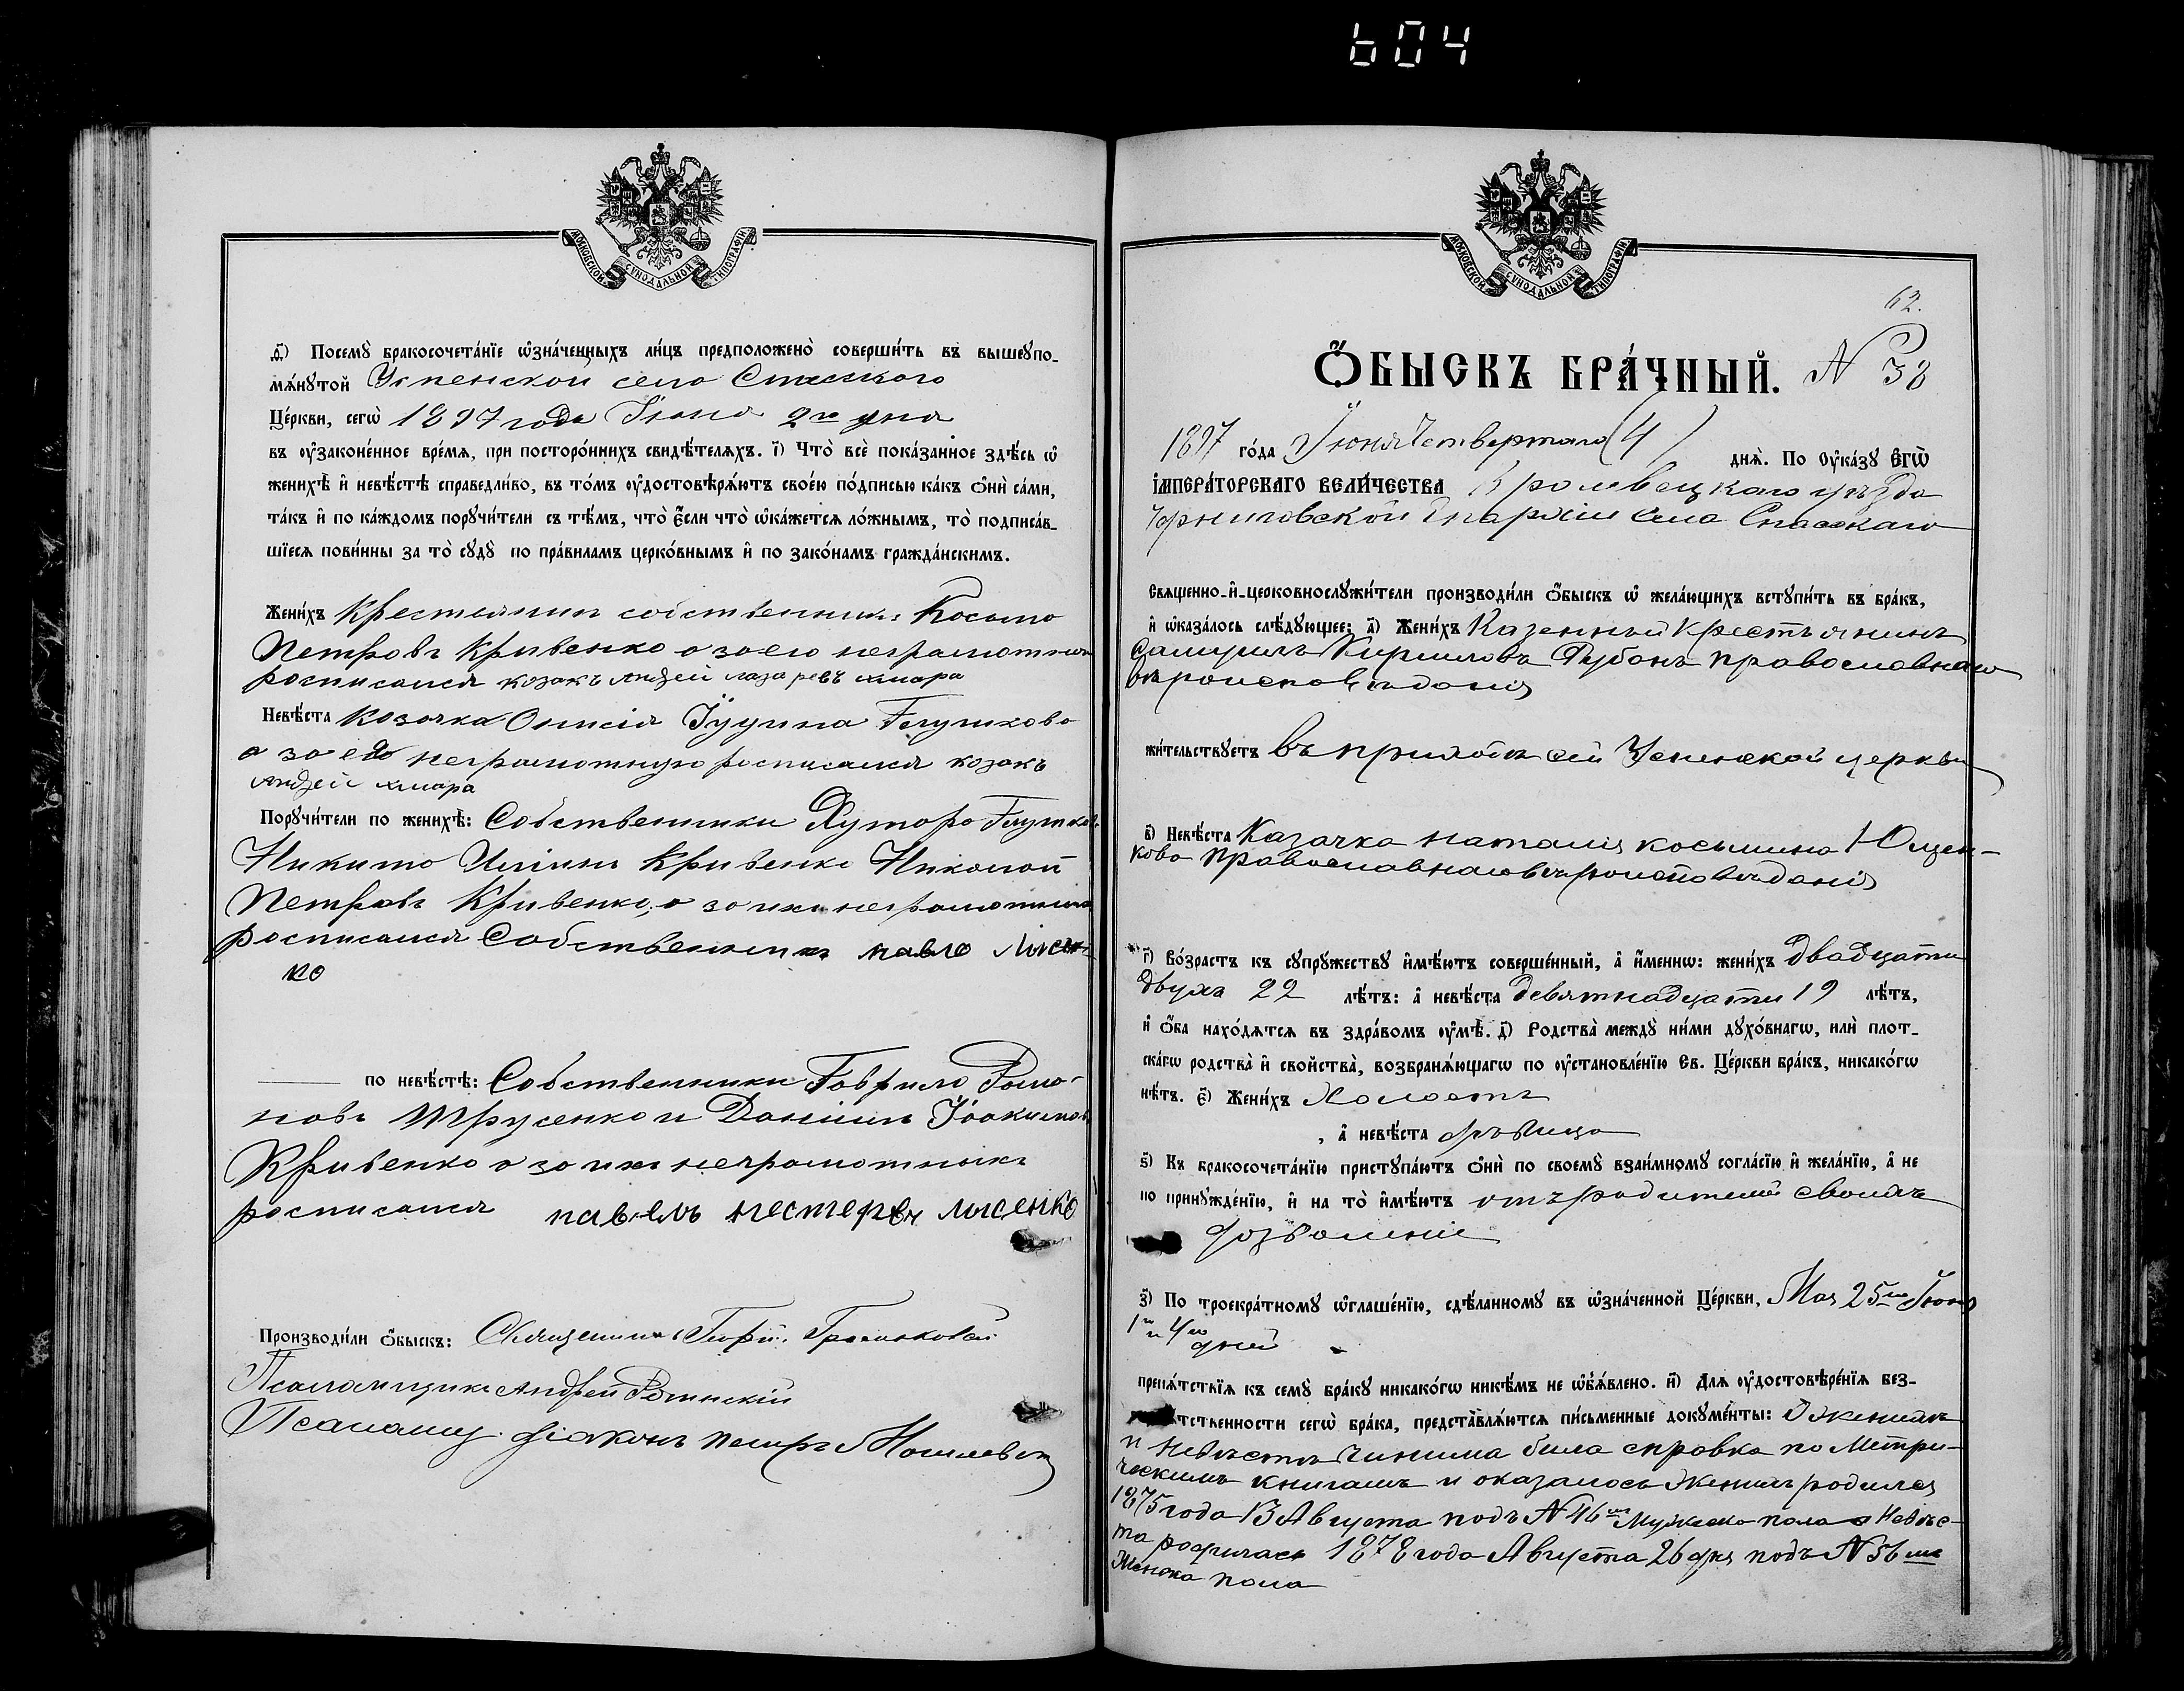 604
МОСКОВСКОЙ СѴНОДАЛЬНОЙ ТИПОГРАФІИ
ѳ҃) Посемꙋ̀ бракосочета́нїе ѡ҆зна́ченныхъ ли́цъ предположено̀ соверши́ть въ вышеꙋпо-
мѧ́нꙋтой Успенской села Спасскаго
Це́ркви, сегѡ̀ 1897 года Іюня 2го дня
въ ᲂу҆законе́нное вре́мѧ, при посторо́ннихъ свидѣ́телѧхъ. і҃) Что̀ всѐ пока́занное здѣ́сь ѡ҆
женихѣ̀ и҆ невѣ́стѣ справедли́во, въ то́мъ ᲂу҆достовѣрѧ́ютъ свое́ю по́дписью ка́къ ѻ҆нѝ са́ми,
та́къ и҆ по ка́ждомъ порꙋчи́тели съ тѣ́мъ, что̀ є҆́сли что̀ ѡ҆ка́жетсѧ ло́жнымъ, то̀ подписа́в-
шїесѧ пови́нны за то̀ сꙋдꙋ̀ по пра́виламъ церко́внымъ и҆ по зако́намъ гражда́нскимъ.
Жени́хъ Крестьянинъ собственникъ Косьма
Петровъ Кривенко а за его неграмотнаго
росписался козакъ Андрей лазаревъ хмара
Невѣ́ста Козачка Онисія Іудина Глушкова
а за ея неграмотную росписался козакъ
Андрей хмара
Порꙋчи́тели по женихѣ̀: Собственники Хутора Глушкова
Никита Кривенко Николай
Петровъ Кривенко, а за ихъ неграмотныхъ
росписался Собственникъ павло Лисен-
ко
по невѣ́стѣ: Собственники Гаврило Рома-
новъ Трусенко и Даніилъ Іоакимовъ
Кривенко а за ихъ неграмотныхъ
росписался павелъ нестеревъ лисенко
Производи́ли ѻ҆́быскъ: Священникъ
Псаломщикъ Андрей
Псаломщ. діаконъ петръ
МОСКОВСКОЙ СѴНОДАЛЬНОЙ ТИПОГРАФІИ
62.
Ѻ҆́БЫСКЪ БРА́ЧНЫЙ. N 38
1897 го́да Іюня Четвертаго (4) днѧ̀. По Оу҆ка́зꙋ Є҆гѡ̀
І҆мпера́торскагѡ Вели́чества Кролевецкаго уѣзда
Черниговской Епархіи села Спасскаго
Свѧщенно-и҆-церковнослꙋжи́тели производи́ли ѻ҆́быскъ ѡ҆ жела́ющихъ встꙋпи́ть въ бра́къ,
и҆ ѡ҆каза́лось слѣ́дꙋющее: а҃) Жени́хъ Казенный Крестьянинъ
Самуилъ Кириловъ Дубонъ православнаго
вѣроисповѣданія
жи́тельствꙋетъ въ приходѣ сей Успенской церкви
в҃) Невѣ́ста Казачка наталія косьмина Ющен-
кова православнаго вѣроисповѣданія
г҃) Во́зрастъ къ сꙋпрꙋ́жествꙋ и҆мѣ́ютъ соверше́нный, а҆ и҆́меннѡ: жени́хъ двадцати
двухъ 22 лѣ́тъ: а҆ невѣ́ста девятнадцати 19 лѣ́тъ,
и҆ ѻ҆́ба нахо́дѧтсѧ въ здра́вомъ ᲂу҆мѣ̀. д҃) Родства̀ междꙋ̀ ни́ми дꙋхо́внагѡ, илѝ плот-
ска́гѡ родства̀ и҆ свойства̀, возбранѧ́ющагѡ по ᲂу҆становле́нїю Св. Це́ркви бра́къ, никако́гѡ
нѣ́тъ. є҃) Жени́хъ Холостъ
, а҆ невѣ́ста дѣвица
ѕ҃) Къ бракосочета́нїю пристꙋпа́ютъ ѻ҆нѝ по своемꙋ̀ взаи́мномꙋ согла́сїю и҆ жела́нїю, а҆ не
по принꙋжде́нїю, и҆ на то̀ и҆мѣ́ютъ отъ родителей своихъ
дозволеніе
з҃) По троекра́тномꙋ ѡ҆глаше́нїю, сдѣ́ланномꙋ въ ѡ҆зна́ченной Це́ркви, Мая 25го Іюня
1го и 4го
дней
препѧ́тствїѧ къ семꙋ̀ бра́кꙋ никако́гѡ никѣ́мъ не ѡ҆б̾ѧ́влено. и҃) Длѧ ᲂу҆достовѣре́нїѧ без-
тственности сегѡ̀ бра́ка, представлѧ́ютсѧ пи́сьменные докꙋме́нты: О женихѣ
и невѣстѣ чинима била справка по Метри-
ческимъ книгамъ и оказалось Женихъ родился
1875 года 13 Августа подъ N 46мъ Мужеска пола а Невѣс-
та родилась 1878 года Августа 26 дня подъ N 56мъ
Женска пола